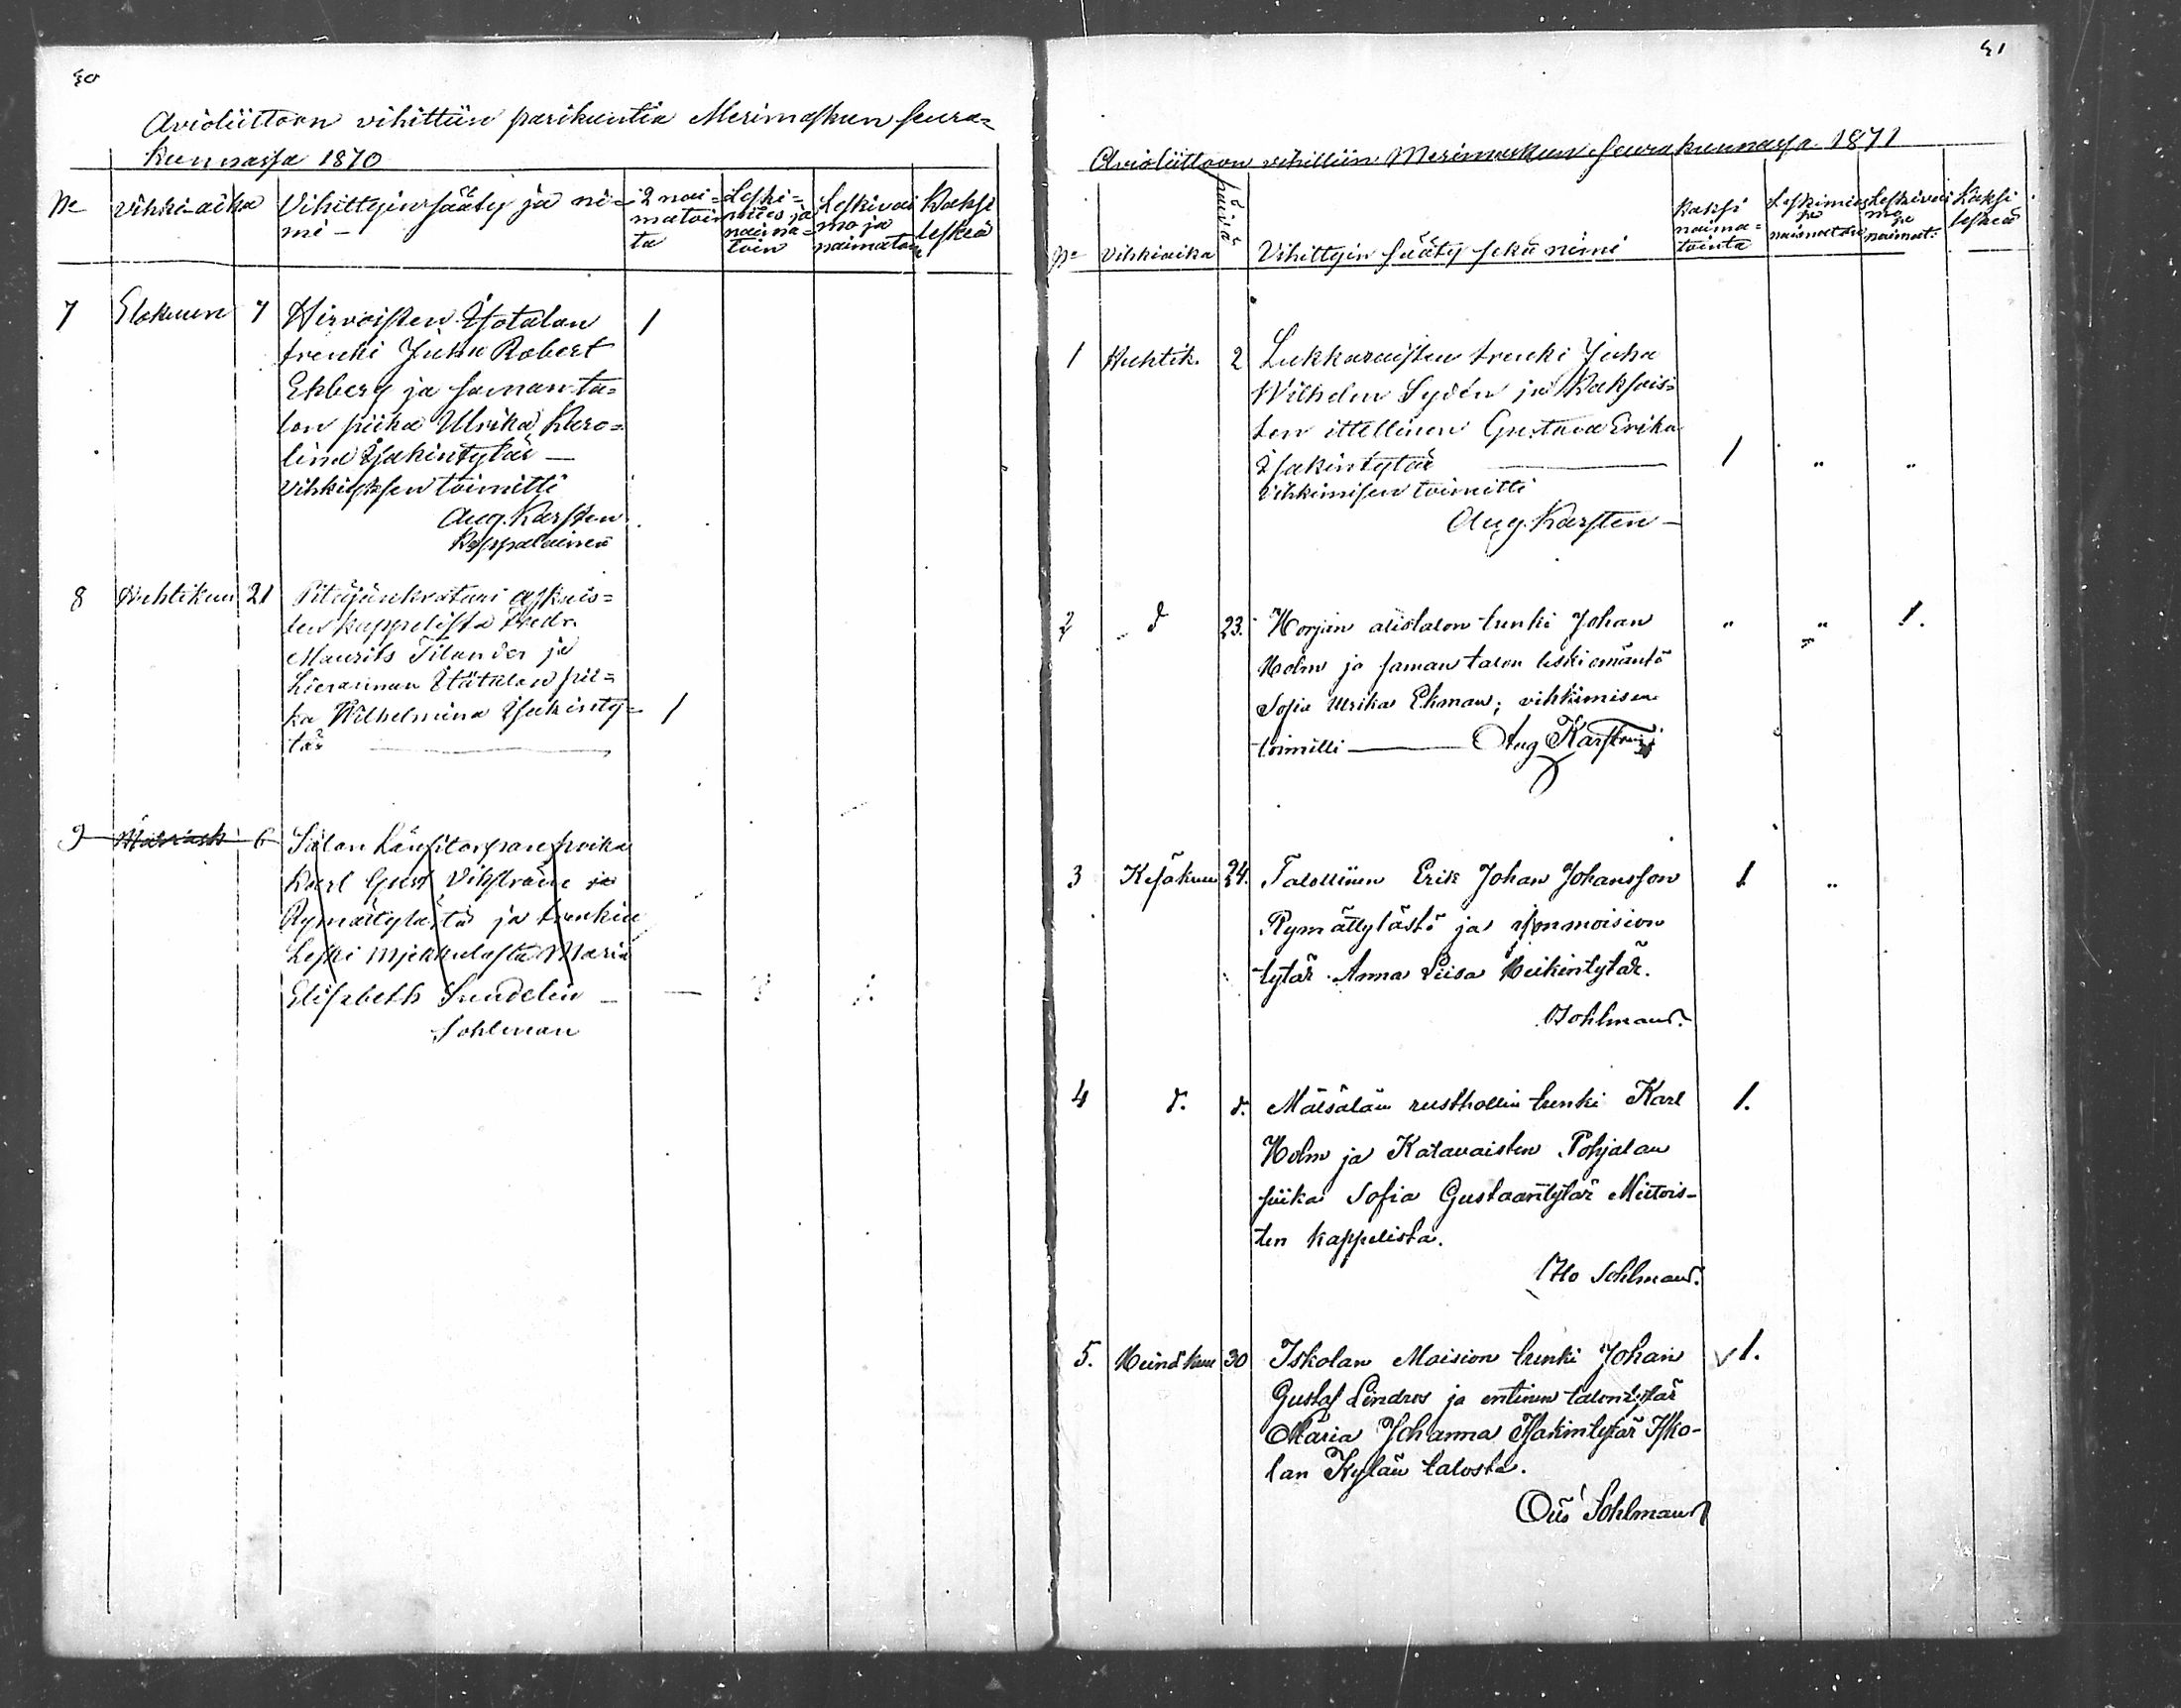 40
Avioliittoon vihittiin parikuntia Merimaskun seura=
kunnassa 1870
No Vihki-aika Vihittyin sääty ja ni=
mi —
2 nai=
matoin
ta
Leski=
mies ja
naima=
toin
Leskivai
mo ja
naimaton
Kaksi
leskeä
7 Elokuun 7 Hirvoisten Isotalon 1
trenki Juha Robert
Ekberg ja saman ta=
lon piika Ulrika Karo=
lina Isakintytär —
Vihkiyksen toimitti
Aug. Karsten
Kappalainen
8 Huhtikuun 21 Pitäjänkratari Askais=
ten kappelista Fredr.
Maurits Tilander ja
Hierannan Itätalon pii=
ka Wilhelmina Isakinty= 1
tär
9 6 Salon Länsitorpan poika
Karl Gust Vikström ja
Rymättylästä ja trenkin
Leski Mjekkulasta Maria
Elisabeth Sundelin —
Sohlman
41
Avioliittoon vihittiin Merimaskun seurakunnassa 1871
No Vihkiaika päivä Vihittyin sääty sekä nimi
Kaksi
naima=
tointa
Leskimies
ja
naimatoin
Leskivai
mo
ja
naimat.
Kaksi
leskeä
1 Huhtik. 2 Lukkaraisten trenki Juha
Wilhelm Sydén ja Kaksois=
ten ittellinen Gustava Erika
Isakintytär 1 " "
Vihkimisen toimitti
Aug. Karsten —
2 d 23. Horjan alistalon trenki Johan " " 1.
Holm ja saman talon leski emäntä
Sofia Ulrika Ekman; vihkimisen
toimitti — Aug Karsten
3 Kesäkuu 24. Talollinen Erik Johan Johansson 1 "
Rymättylästä ja
tytär Anna Liisa Heikintytär.
O Sohlman.
4 d. d. Mälsälän rusthollin trenki Karl 1.
Holm ja Katavaisten Pohjalan
piika Sofia Gustaavintytär Mietois-
ten kappelista.
Otto Sohlman.
5. Heinäkuu 30 Iskolan Moision trenki Johan 1.
Gustaf Lindros ja entinen talontytär
Maria Johanna Isakintytär Isko-
lan Kylän talosta.
Otto Sohlman